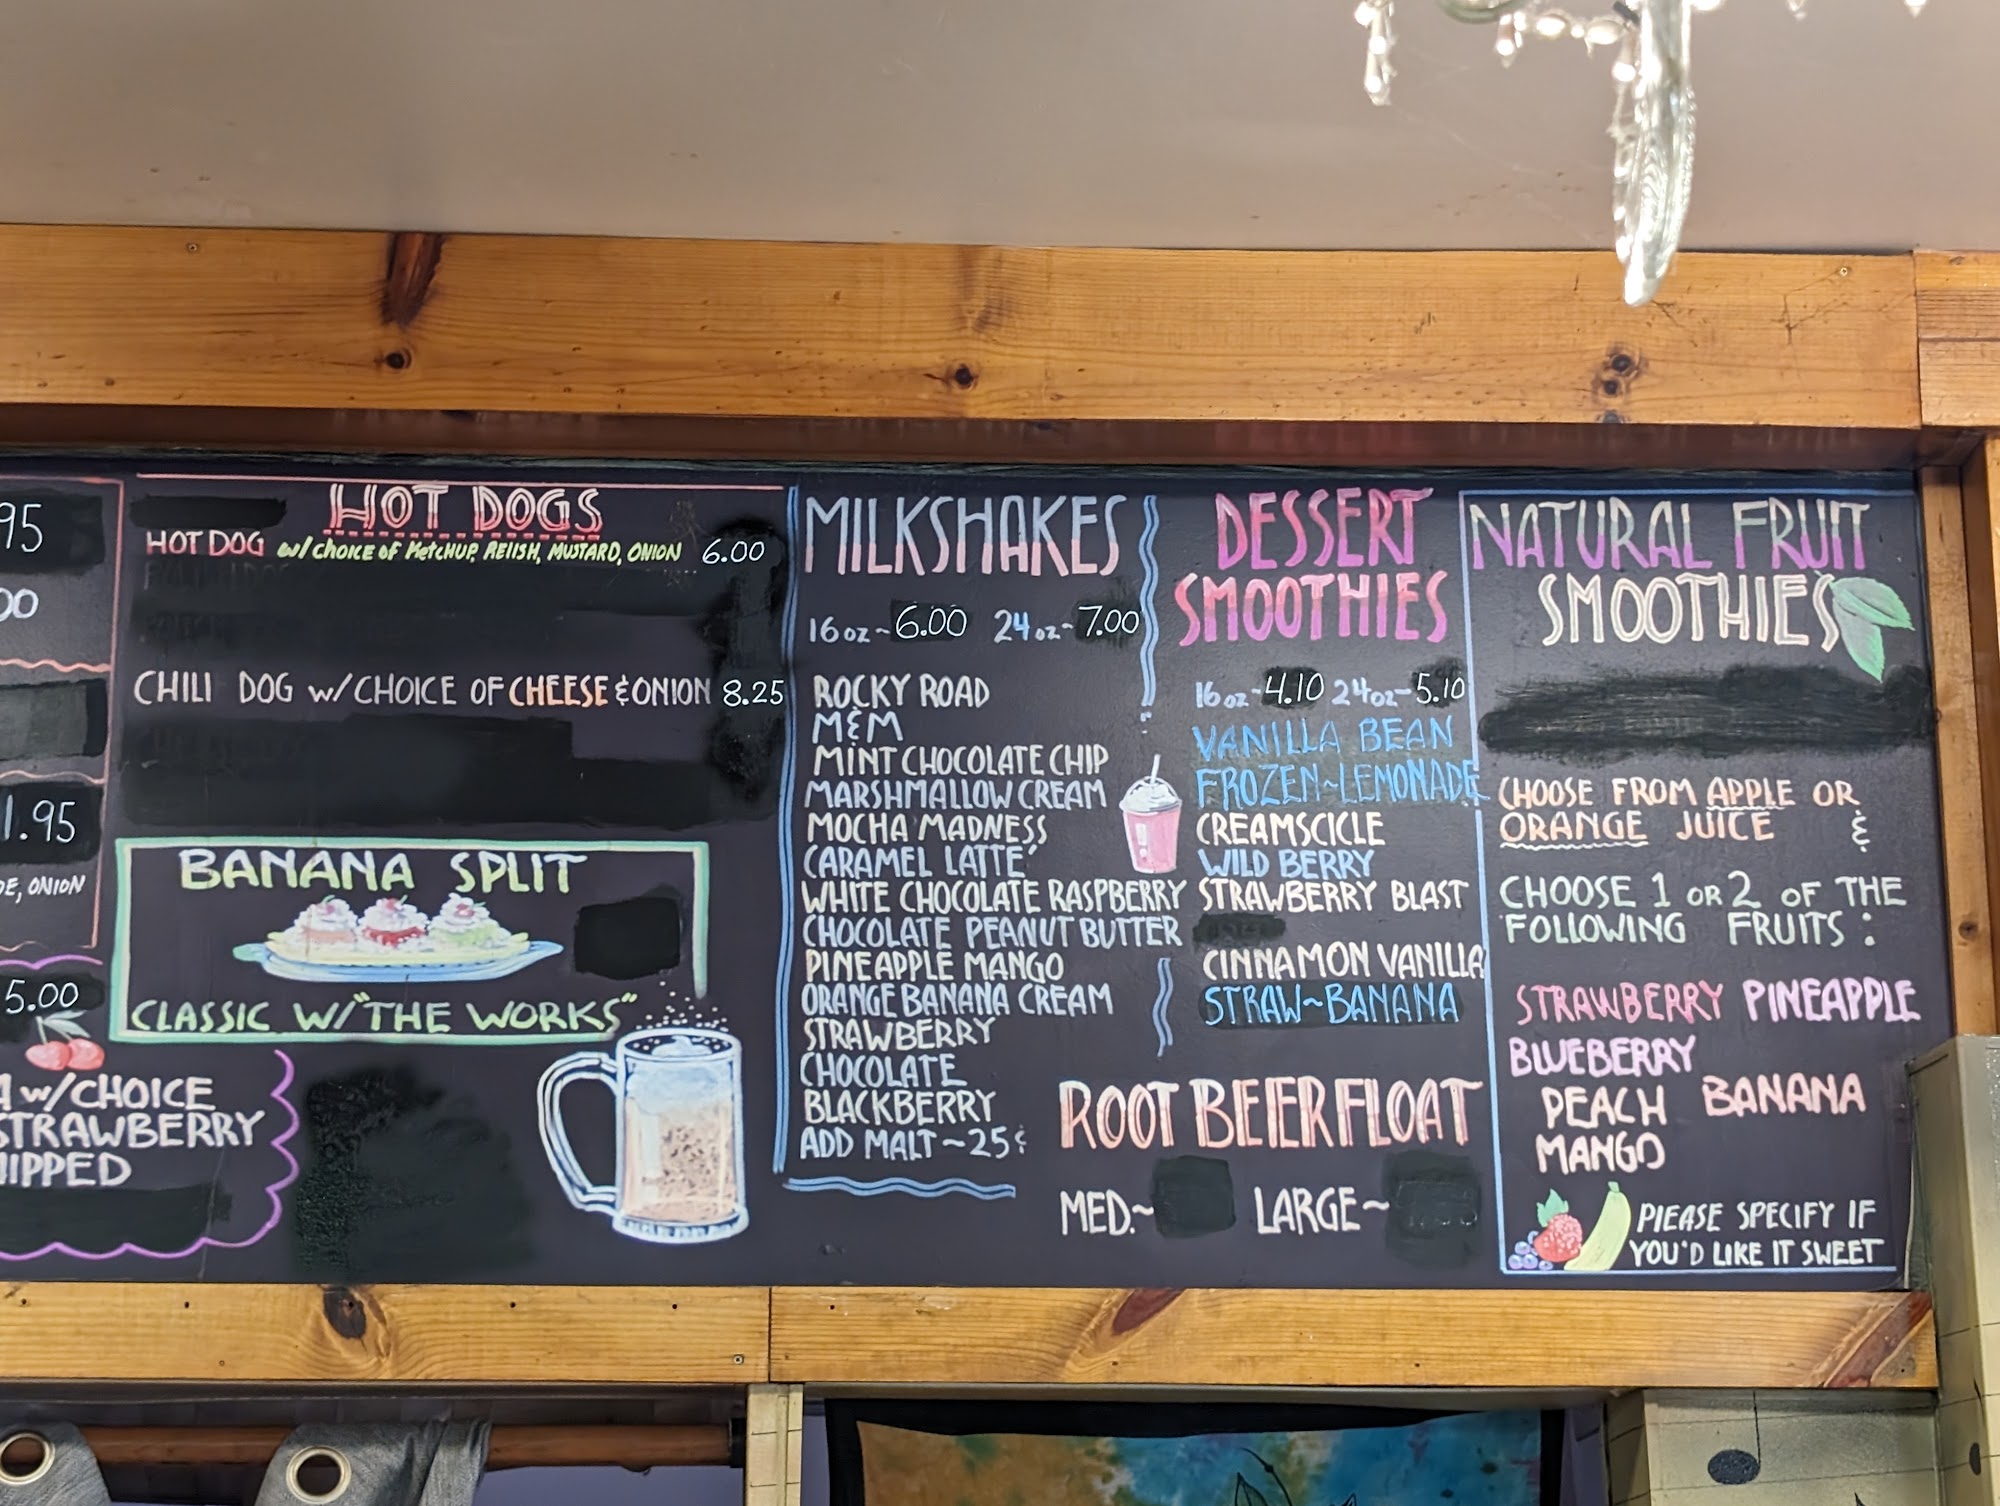 95
00
1.95
DE, ONION
5.00
A w/CHOICE
STRAWBERRY
HIPPED
HOT DOGS
HOT DOG w/CHOICE OF KETCHUP, RELISH, MUSTARD, ONION 6.00
CHILI DOG w/CHOICE OF CHEESE & ONION 8.25
BANANA SPLIT
CLASSIC W/"THE WORKS"
MILKSHAKES
16oz~6.00 24oz~7.00
ROCKY ROAD
M&M
MINT CHOCOLATE CHIP
MARSHMALLOW CREAM
MOCHA MADNESS
CARAMEL LATTE'
WHITE CHOCOLATE RASPBERRY
CHOCOLATE PEANUT BUTTER
PINEAPPLE MANGO
ORANGE BANANA CREAM
STRAWBERRY
CHOCOLATE
BLACKBERRY
ADD MALT~25¢
DESSERT
SMOOTHIES
16oz~4.10 24oz~5.10
VANILLA BEAN
FROZEN~LEMONADE
CREAMSCICLE
WILD BERRY
STRAWBERRY BLAST
CINNAMON VANILLA
STRAW~BANANA
ROOT BEER FLOAT
MED.~ LARGE~
NATURAL FRUIT
SMOOTHIES
CHOOSE FROM APPLE OR
ORANGE JUICE &
CHOOSE 1 OR 2 OF THE
FOLLOWING FRUITS:
STRAWBERRY PINEAPPLE
BLUEBERRY
PEACH BANANA
MANGO
PLEASE SPECIFY IF
YOU'D LIKE IT SWEET